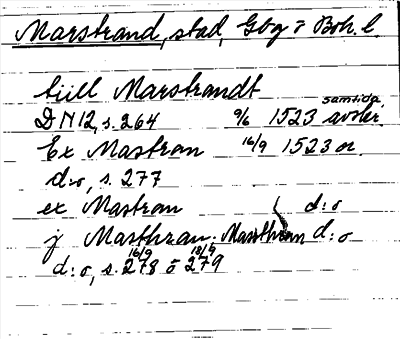 Marstrand, stad, Gbg o Boh. l.
till Marstrandt
DN 12, s. 264 9/6 1523 samtida avskr.
Ex Mastran 16/9 1523 or.
d:o, s. 277
ex Mastran d:o
j Masthran. Mastthran d:o
d:o, s. 278 16/9 o 279 18/9